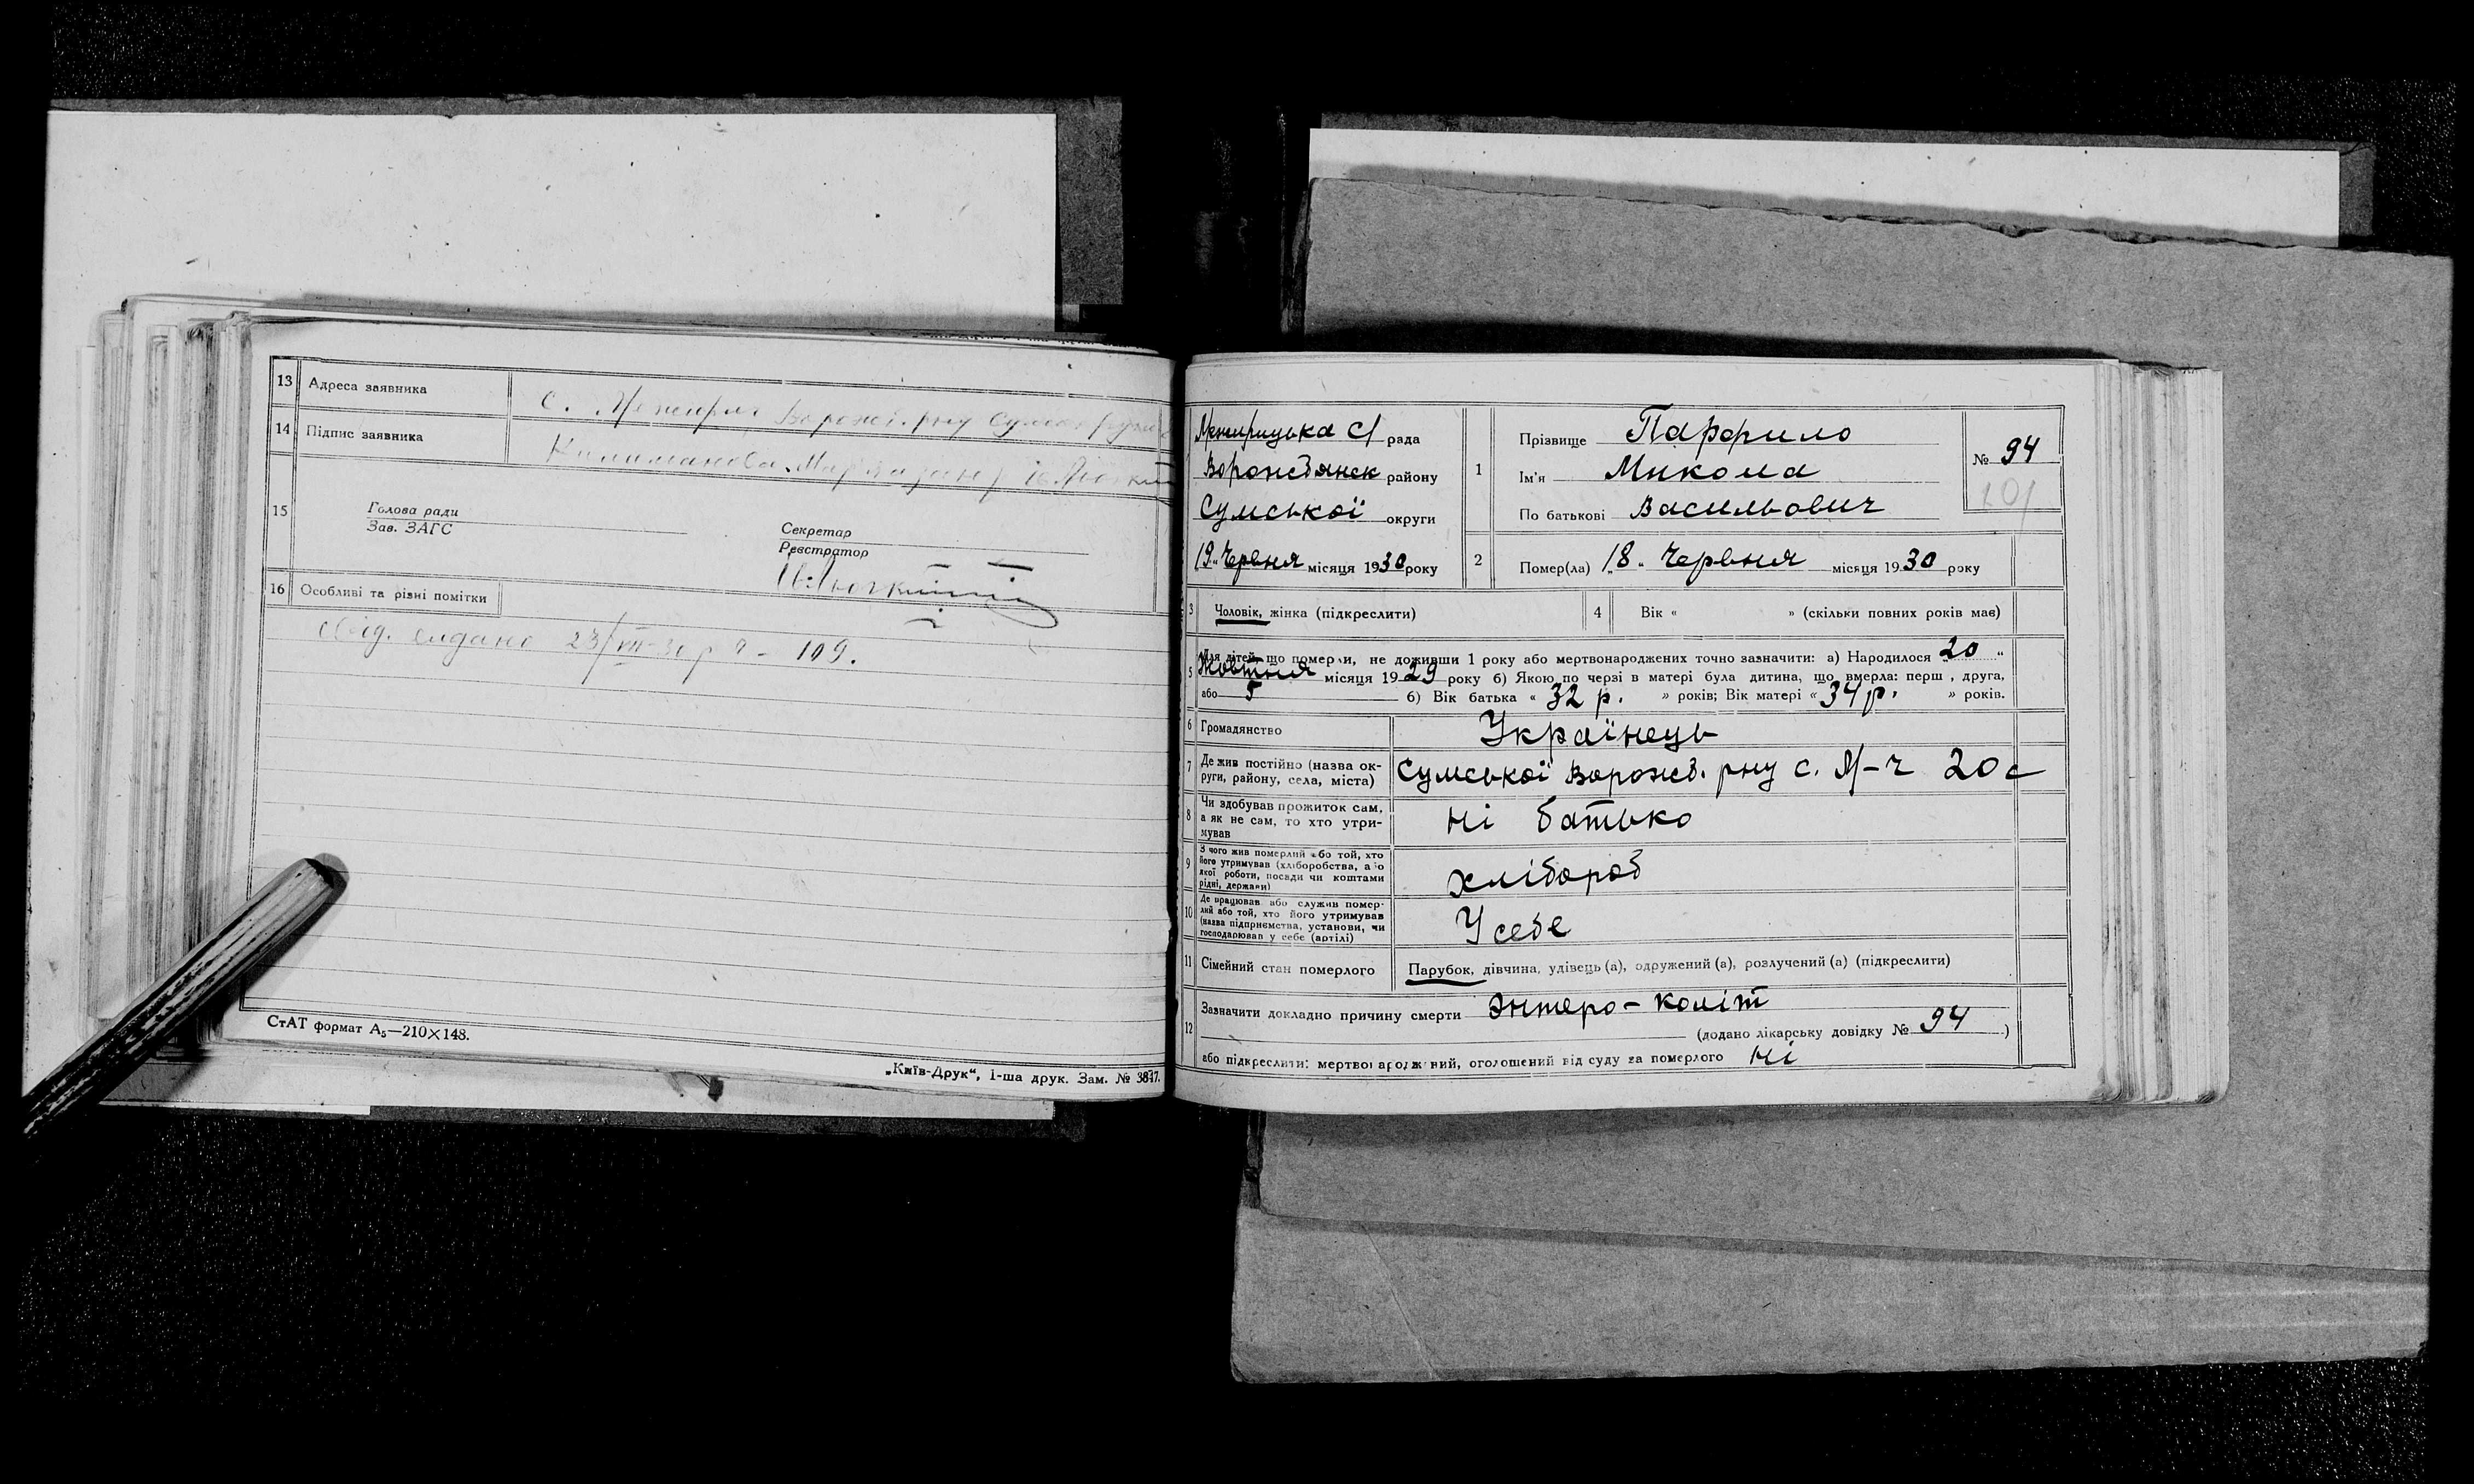 13 Адреса заявника с. Ворожб. рну
14 Підпис заявника
15 Голова ради
Зав. ЗАГС
Секретар
Реєстратор
16 Особливі та різні помітки
видано 23/ - 109.
СтАТ формат А₅—210×148.
„Київ-Друк“, 1-ша друк. Зам. № 3847.
Межирицька с/ рада
Ворожбянск району
Сумської округи
19 „ Червня місяця 1930 року
1 Прізвище Парфило
Ім'я Микола
По батькові Васильович
№ 94
101
2 Помер(ла) „18 „ Червня місяця 1930 року
3 Чоловік, жінка (підкреслити)
4 Вік « » (скільки повних років має)
5 Для дітей, що померли, не доживши 1 року або мертвонароджених точно зазначити: а) Народилося „20 “
Жовтня місяця 1929 року б) Якою по черзі в матері була дитина, що вмерла: перш , друга,
або 5 б) Вік батька « 32 р. » років; Вік матері « 34 р. » років.
6 Громадянство Українець
7 Де жив постійно (назва округи, району, села, міста) Сумської Ворожб. рну с. М-ч 20 с
8 Чи здобував прожиток сам,
а як не сам, то хто утри-
мував ні батько
9 З чого жив померлий або той, хто
його утримував (хліборобства, або
якої роботи, посади чи коштами
рідні, держави) хлібороб
10 Де працював або служив помер-
лий або той, хто його утримував
(назва підприємства, установи, чи
господарював у себе (артілі) У себе
11 Сімейний стан померлого Парубок, дівчина, удівець (а), одружений (а), розлучений (а) (підкреслити)
12 Зазначити докладно причину смерти Энтеро-коліт
(додано лікарську довідку № 94 )
або підкреслити: мертвонароджений, оголошений від суду за померлого ні